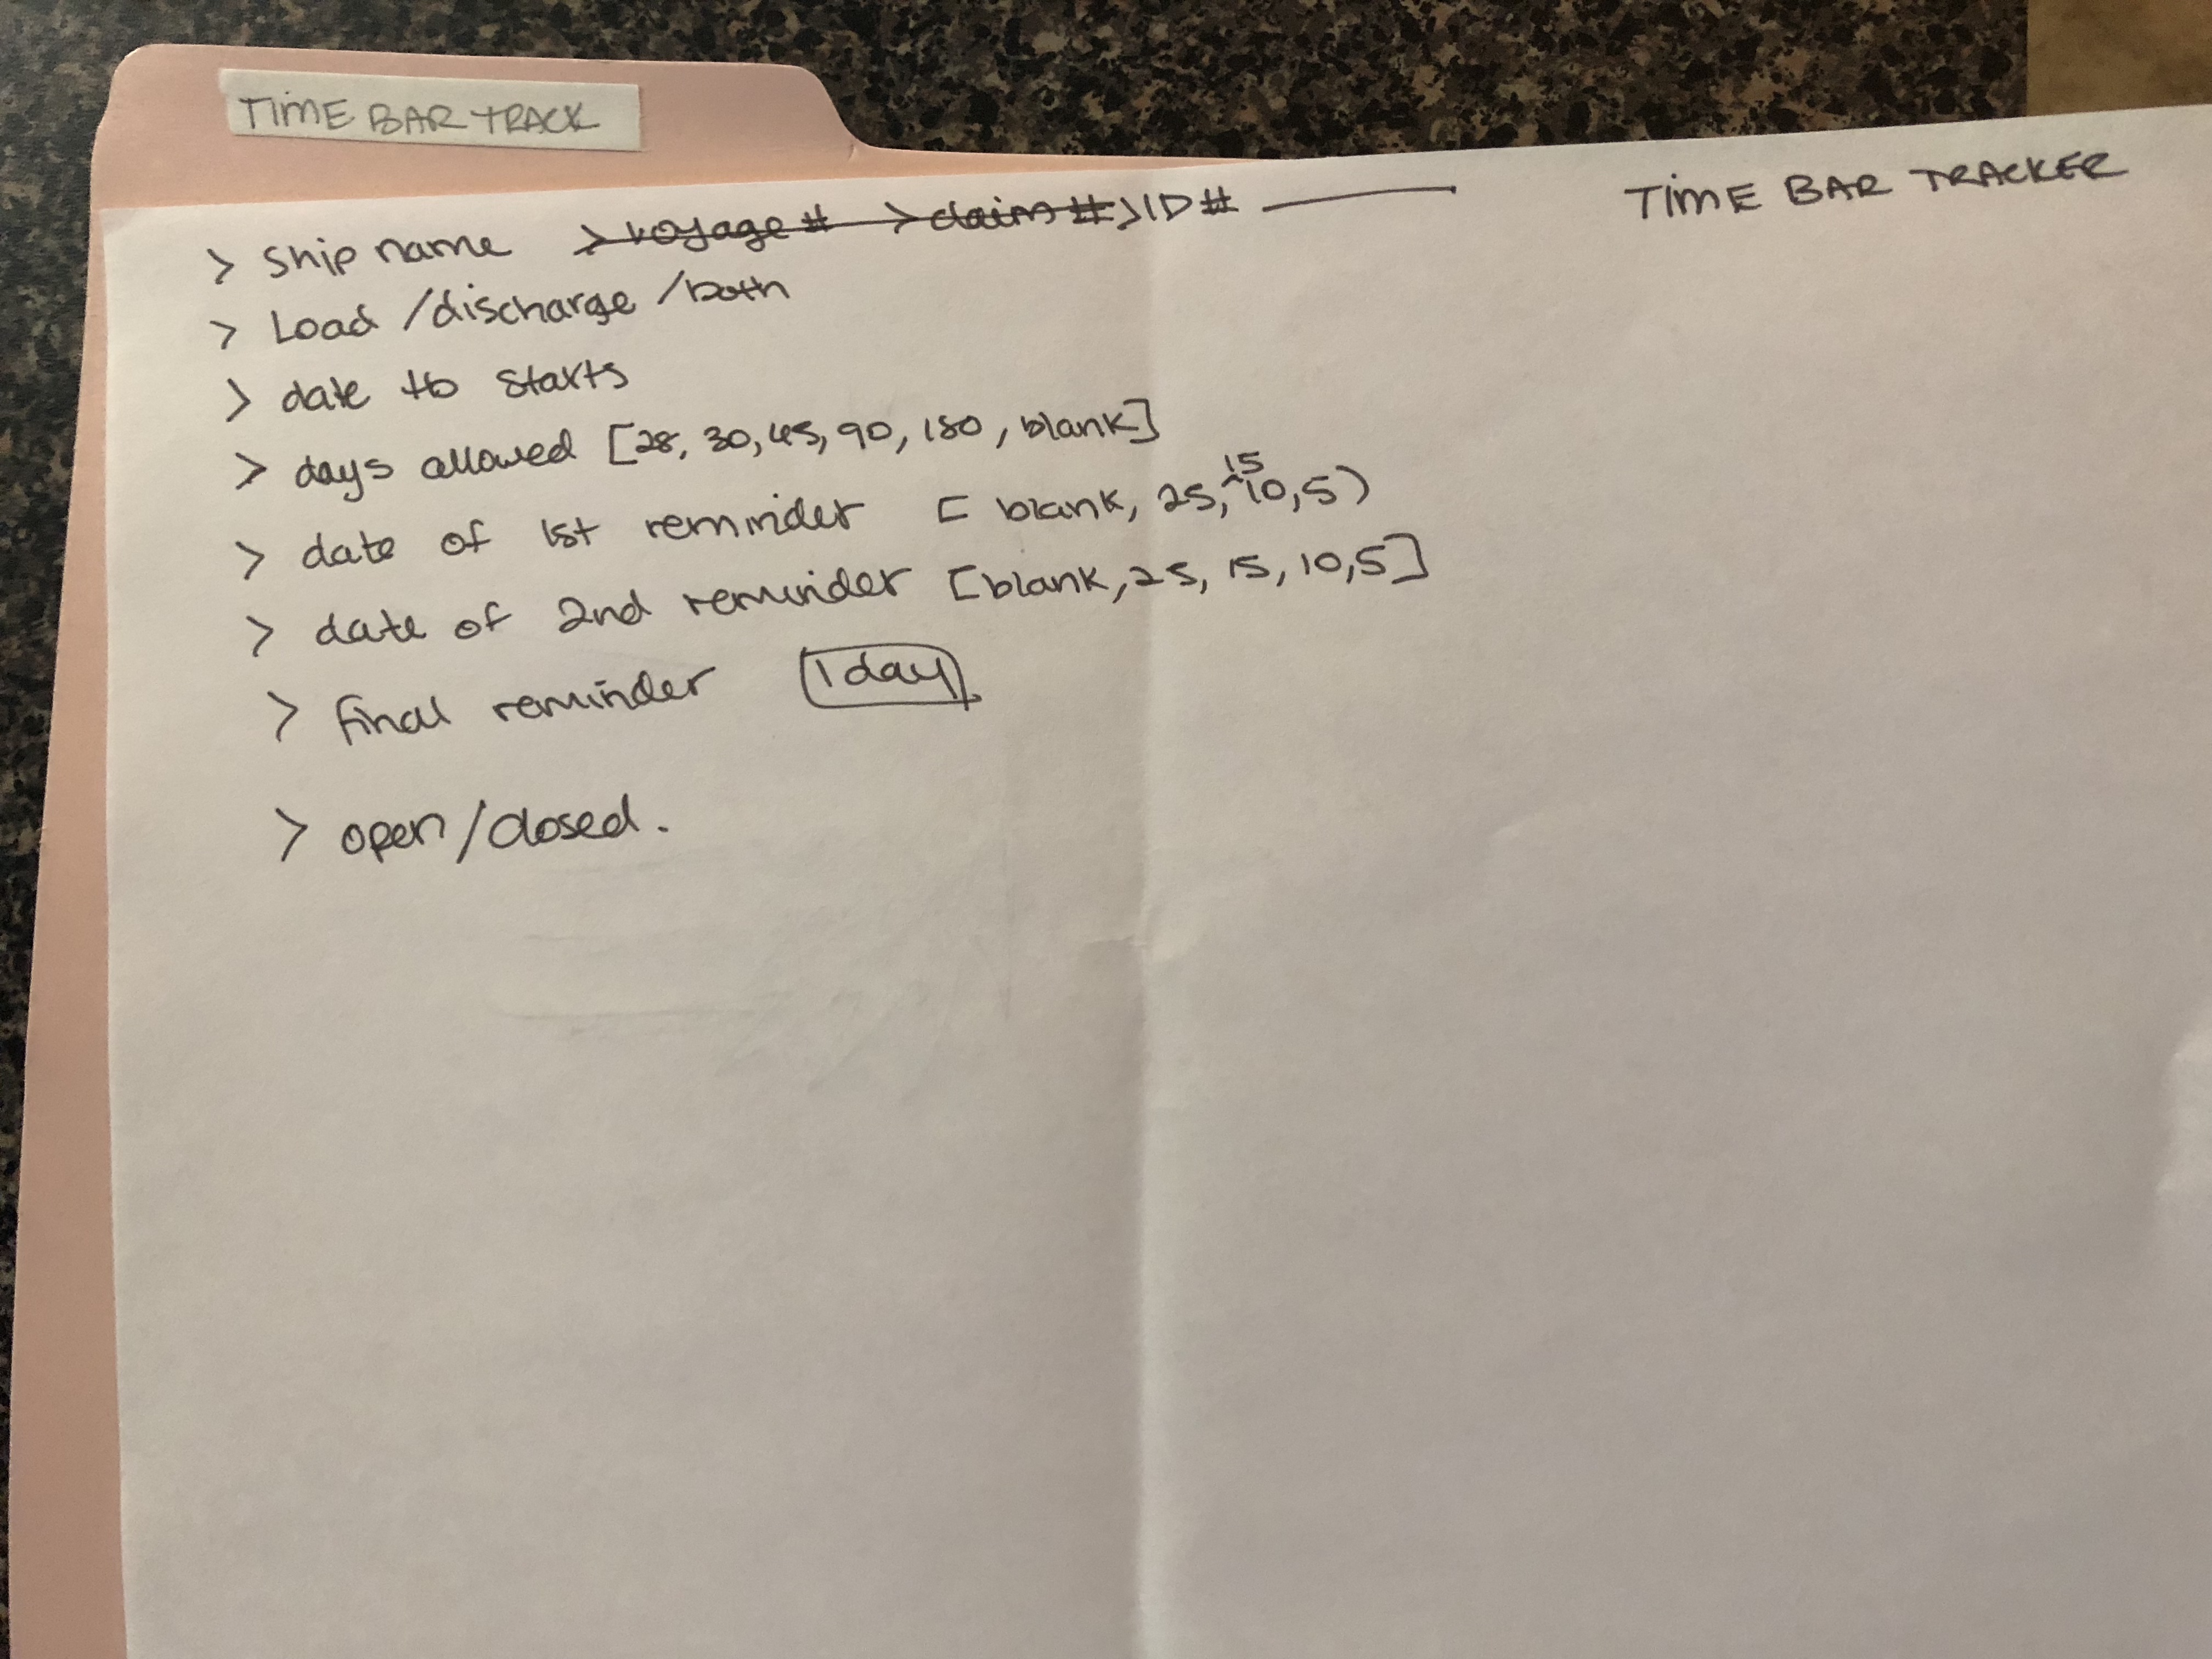 TIME BAR TRACK
TIME BAR TRACKER
> Ship name > voyage # > claim # > ID #
> Load / discharge / both
> date tb starts
> days allowed [28, 30, 45, 90, 180, blank]
> date of 1st reminder [ blank, 25, 15 10, 5)
> date of 2nd reminder [blank, 25, 15, 10, 5]
> final reminder 1 day
> open / closed.